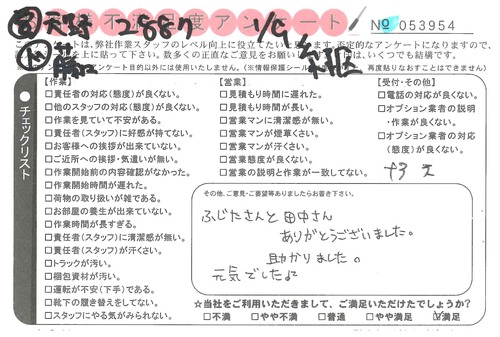 不満足度アンケート
2887
1/9
№ 053954
このアンケートは、弊社作業スタッフのレベル向上に役立てたいと
否定的なアンケートになりますので、
を上に貼って下さい。数多くの正直なご意見をお願い
はいくつでも結構です。
ンケート目的以外には使用いたしません。(※情報保護シール
再度貼りなおすことはできません)
チェックリスト
【作業】
□責任者の対応(態度)が良くない。
□他のスタッフの対応(態度)が良くない。
□作業を見ていて不安がある。
□責任者(スタッフ)に好感が持てない。
□お客様への挨拶が出来ていない。
□ご近所への挨拶・気遣いが無い。
□作業開始前の内容確認がなかった。
□作業開始時間が遅れた。
□荷物の取り扱いが雑である。
□お部屋の養生が出来ていない。
□作業時間が長すぎる。
□責任者(スタッフ)に清潔感が無い。
□責任者(スタッフ)が汗くさい。
□トラックが汚い。
□梱包資材が汚い。
□運転が不安(下手)である。
□靴下の履き替えをしてない。
□スタッフにやる気がみられない。
【営業】
□見積もり時間に遅れた。
□見積もり時間が長い。
□営業マンに清潔感が無い。
□営業マンが煙草くさい。
□営業マンが汗くさい。
□営業態度が良くない。
□営業の説明と作業が一致してない。
【受付・その他】
□電話の対応が良くない。
□オプション業者の説明
・作業が良くない。
□オプション業者の対応
(態度)が良くない。
その他、ご意見・ご要望等ありましたらお書き下さい。
ふじたさんと田中さん
ありがとうございました。
助かりました。
元気でした♪
☆当社をご利用いただきまして、ご満足いただけたでしょうか?
□不満 □やや不満 □普通 □やや満足 ☑満足